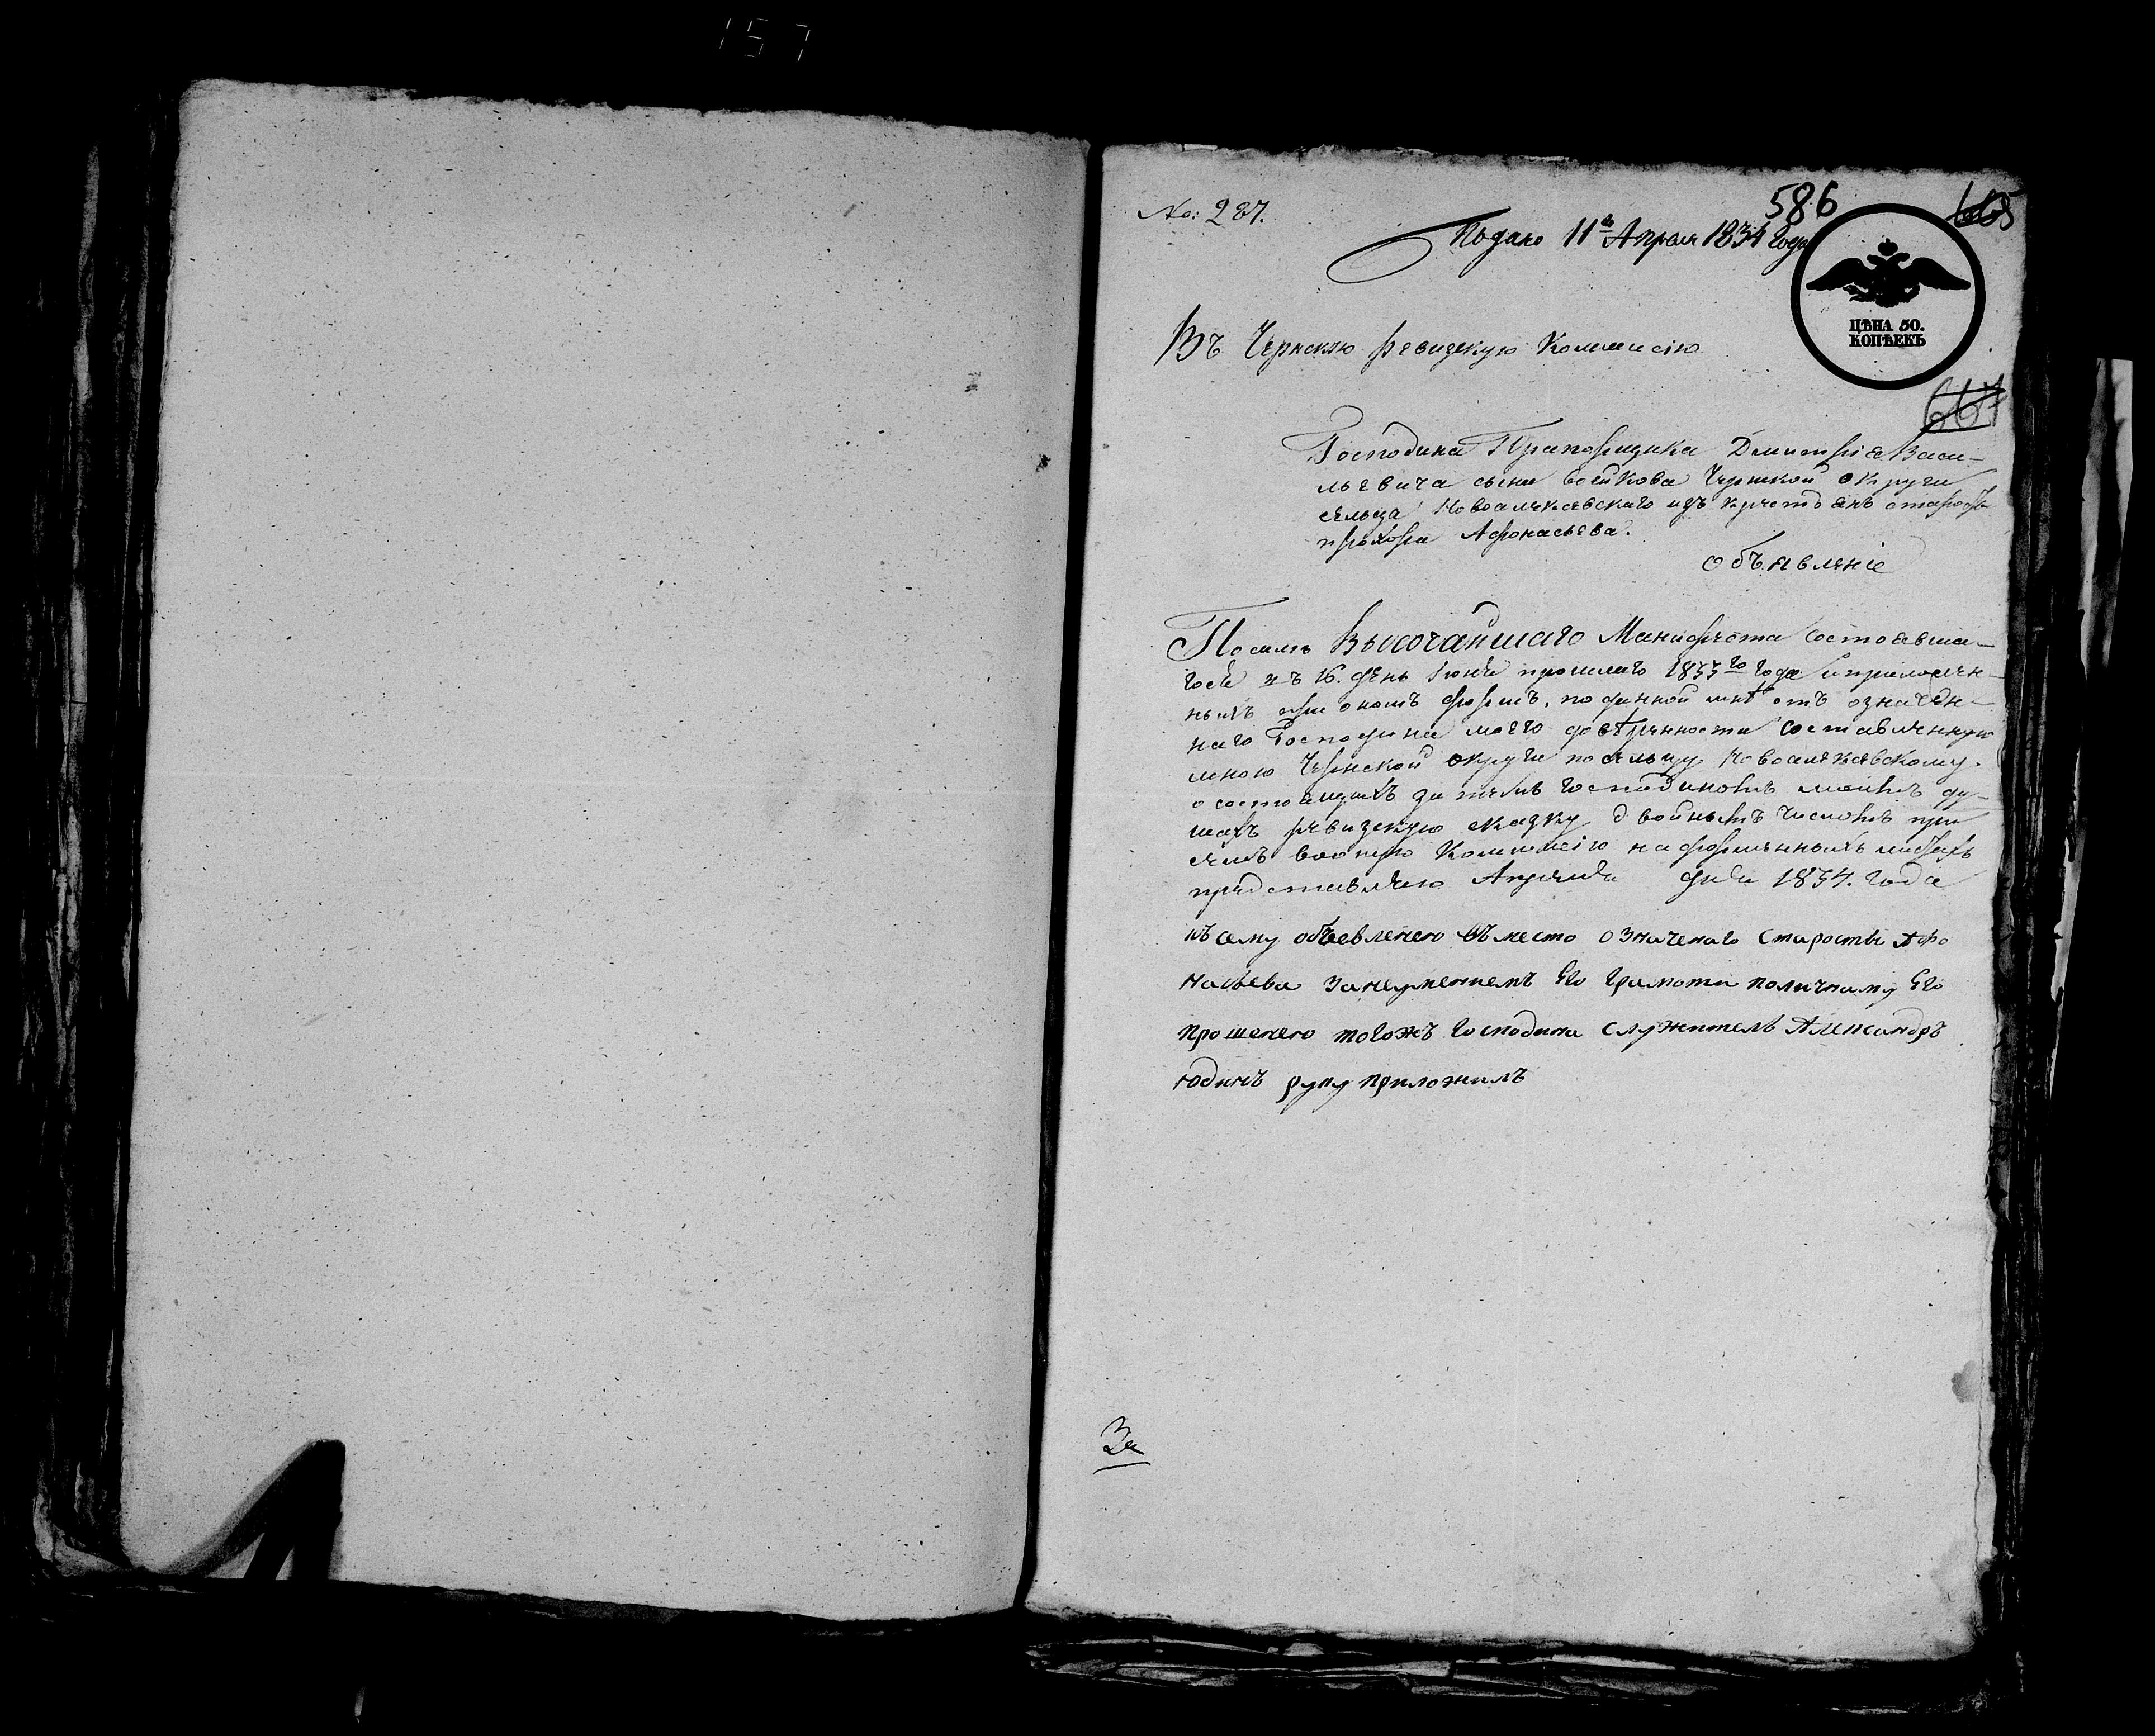 157
No: 287.
586
Подано 11го Апреля 1834 года
ЦѢНА 50.
КОПѢЕКЪ
Въ Чернскую ревизскую Коммисію
Господина Прапорщика Дмитрія Васи-
льевича сына воейкова Чернской округи
сельца Новоалексевскаго изъ крестьянъ старосты
прохора Афонасьева.
объявленіе
По силѣ Высочайшаго Манифеста состоявша-
гося въ 16. день Іюня прошлаго 1833го года и приложен-
ныхъ при ономъ формъ, по данной мнѣ отъ означен-
наго Господина моего довѣренности составленную
мною Чернской округи по сельцу Новоалексевскому.
о состоящихъ за темъ господиномъ моимъ ду-
шахъ ревизскую сказку двойнымъ числомъ при
семъ во оную Коммисію на форменныхъ листахъ
представляю Апреля дня 1834. года
къ сему объевленею въместо означенаго старосты Афо
насьева занеумениемъ Его грамоти поличному Его
прошенею тогожъ господина служитель Александръ
юдинъ руку приложилъ
За